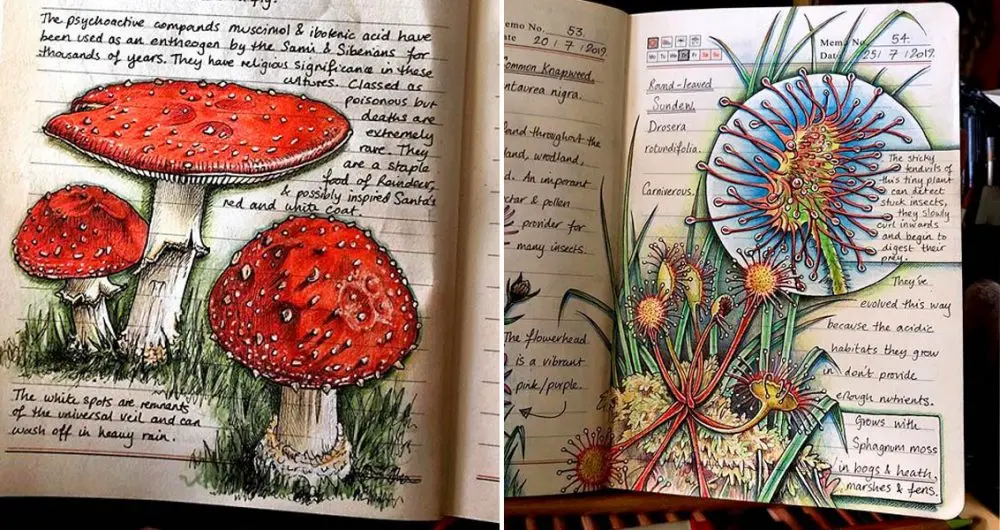 fly.
The psychoactive compounds muscimol & ibotenic acid have
been used as an entheogen by the Sami & Siberians for
thousands of years. They have religious significance in these
cultures. Classed as
poisonous but
deaths are
extremely
rare. They
are a staple
food of Reindeer,
& possibly inspired Santa's
red and white coat.
The white spots are remnants
of the universal veil and can
wash off in heavy rain.
Memo No. 53.
20 / 7 / 2019
ommon Knapweed.
ntaurea nigra.
and throughout the
land, woodland,
d. An important
ctar & pollen
provider for
many insects.
The flowerhead
is a vibrant
pink/purple.
Memo No. 54.
Mo Tu We Th Fr Sa Su
Date 25 / 7 / 2019.
Round-leaved
Sundew.
Drosera
rotundifolia.
Carniverous.
The sticky
tendrils of
this tiny plant
can detect
stuck insects,
they slowly
curl inwards
and begin to
digest their
prey.
They've
evolved this way
because the acidic
habitats they grow
in don't provide
enough nutrients.
Grows with
Sphagnum moss
in bogs & heath,
marshes & fens.